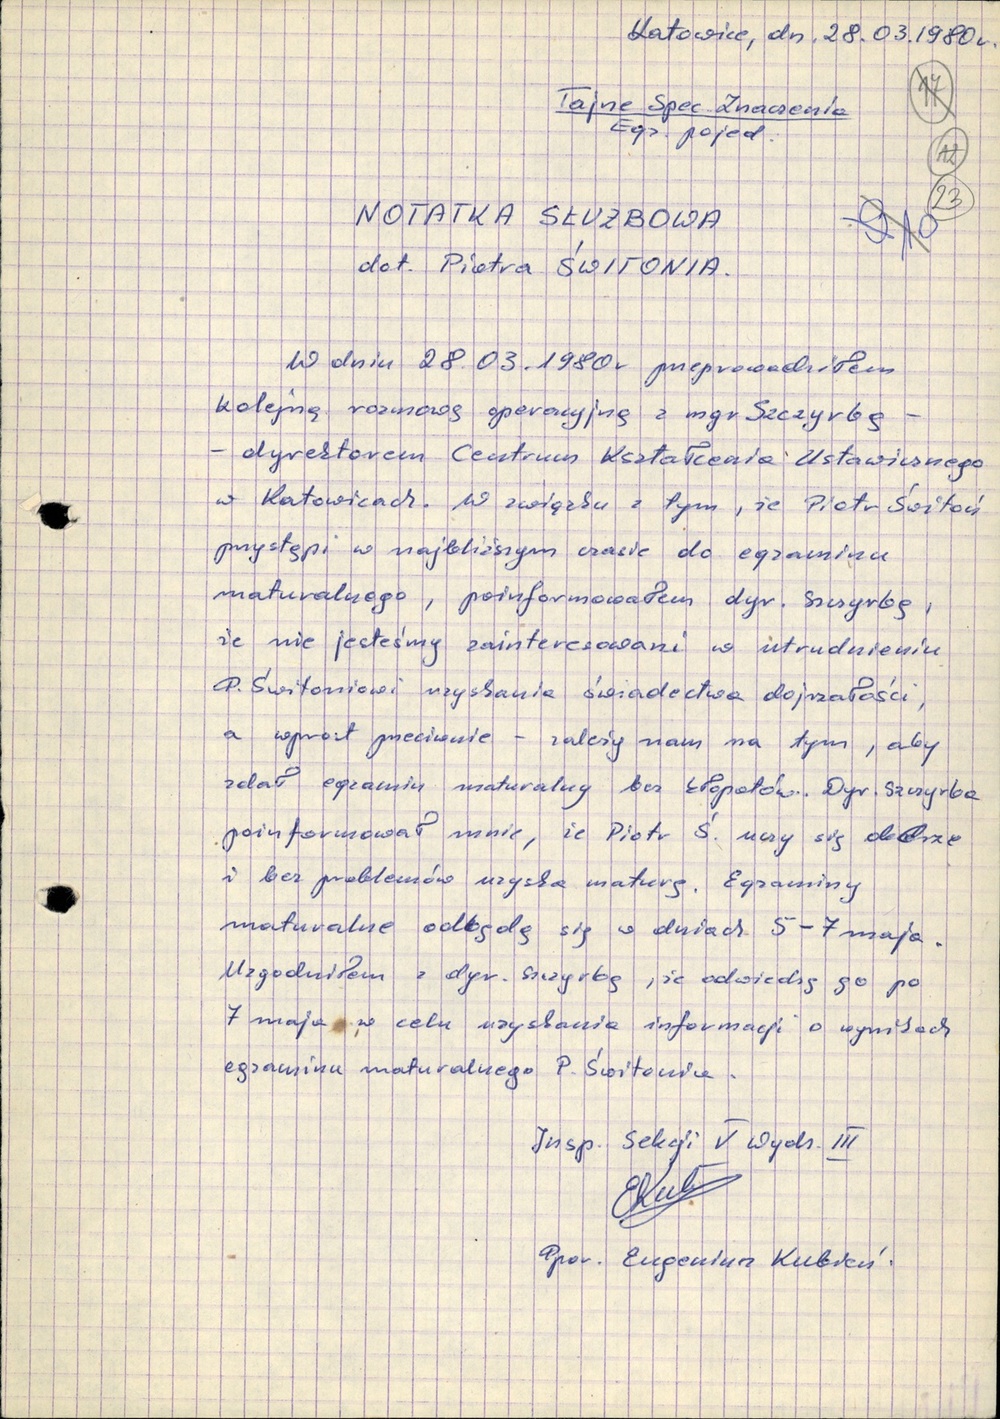 Katowice, dn. 28.03.1980r.
17
Tajne Spec. Znaczenia
Egz. pojed.
12
23
9 10
NOTATKA SŁUŻBOWA
dot. Piotra ŚWITONIA.
W dniu 28.03.1980r przeprowadziłem
kolejną rozmowę operacyjną z mgr Szczyrbą –
– dyrektorem Centrum Kształcenia Ustawicznego
w Katowicach. W związku z tym, że Piotr Świtoń
przystąpi w najbliższym czasie do egzaminu
maturalnego, poinformowałem dyr. Szczyrbę,
że nie jesteśmy zainteresowani w utrudnieniu
P. Świtoniowi uzyskania świadectwa dojrzałości,
a wprost przeciwnie – zależy nam na tym, aby
zdał egzamin maturalny bez kłopotów. Dyr. Szczyrba
poinformował mnie, że Piotr Ś. uczy się dobrze
i bez problemów uzyska maturę. Egzaminy
maturalne odbędą się w dniach 5–7 maja.
Uzgodniłem z dyr. Szczyrbą, że odwiedzę go po
7 maja w celu uzyskania informacji o wynikach
egzaminu maturalnego P. Świtonia.
Insp. Sekcji V Wydz. III
EKub
Ppor. Eugeniusz Kubień.